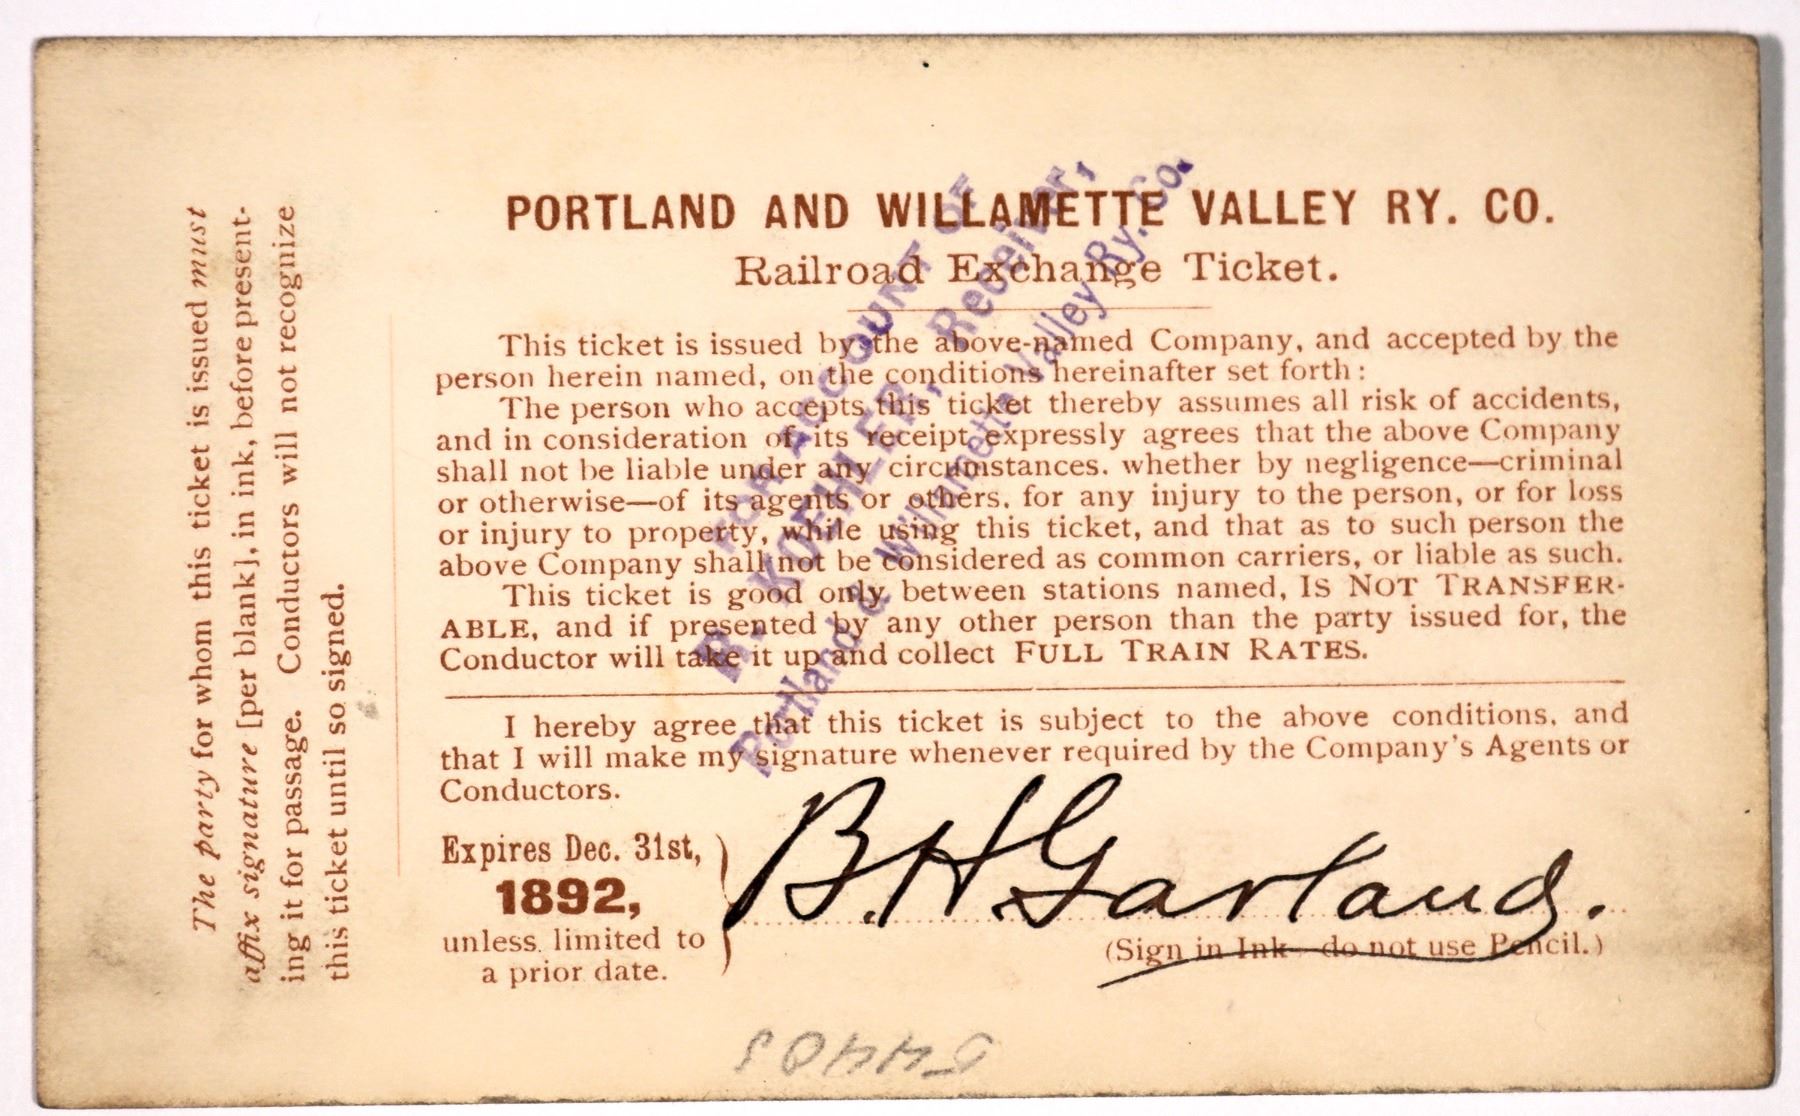 PORTLAND AND WILLAMETTE VALLEY RY. CO.
Railroad Exchange Ticket.
This ticket is issued by the above-named Company, and accepted by the
person herein named, on the conditions hereinafter set forth:
The person who accepts this ticket thereby assumes all risk of accidents,
and in consideration of its receipt expressly agrees that the above Company
shall not be liable under any circumstances. whether by negligence—criminal
or otherwise—of its agents or others. for any injury to the person, or for loss
or injury to property, while using this ticket, and that as to such person the
above Company shall not be considered as common carriers, or liable as such.
This ticket is good only between stations named, IS NOT TRANSFER-
ABLE, and if presented by any other person than the party issued for, the
Conductor will take it up and collect FULL TRAIN RATES.
I hereby agree that this ticket is subject to the above conditions. and
that I will make my signature whenever required by the Company's Agents or
Conductors.
Expires Dec. 31st,
1892,
unless limited to
a prior date.
B. H. Garland.
(Sign in Ink—do not use Pencil.)
The party for whom this ticket is issued must
affix signature [per blank], in ink, before present-
ing it for passage. Conductors will not recognize
this ticket until so signed.
FOR ACCOUNT OF
R. KOEHLER, Receiver,
Portland & Willamette Valley Ry. Co.